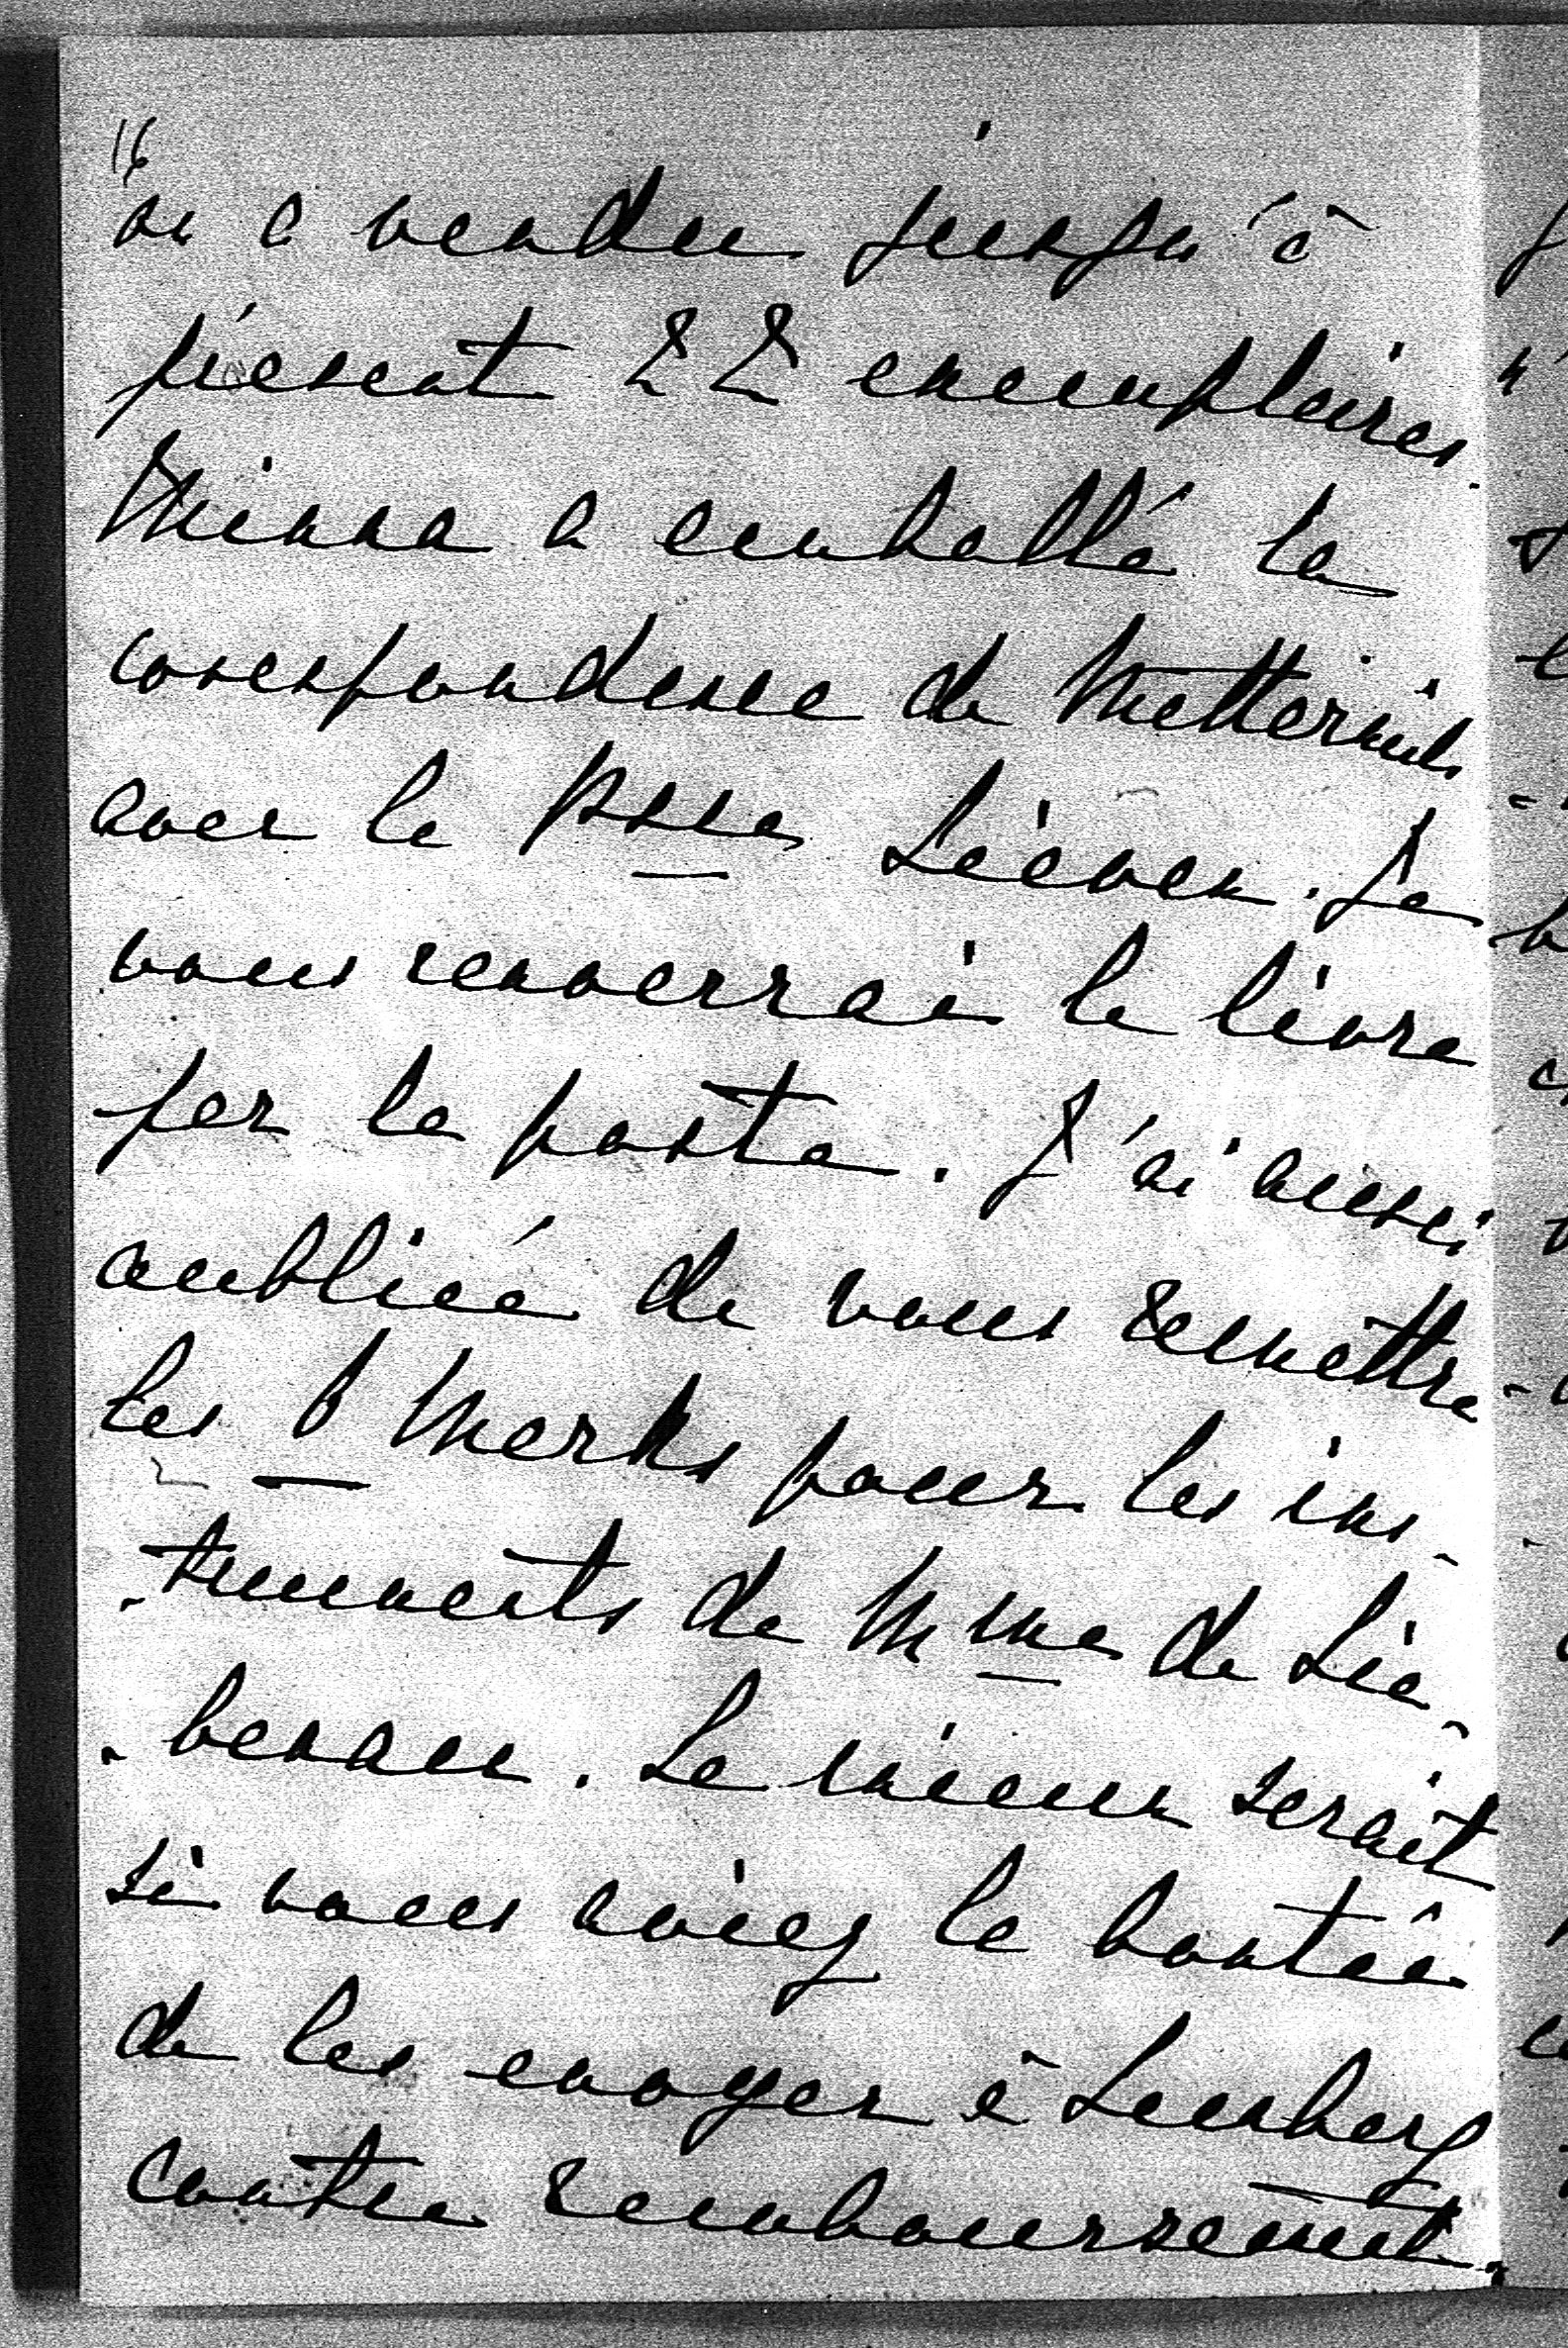 16
on a vendu jusqu'à
présent 22 exemplaires.
Minna a emballé la
correspondence de Metternich
avec la Psse Liéven. Je
vous renverrai le livre
par la poste. J'ai aussi
oublié de vous remettre
les 8 Marks pour les ins-
-truments de Mme de Lie-
-benau. Le mieux serait
si vous aviez la bonté
de les envoyer à Lemberg
contre remboursement.